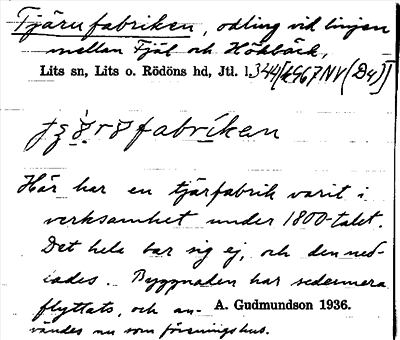 Tjärufabriken, odling vid linjen
mellan Fjäl och Högbäck,
Lits sn, Lits o. Rödöns hd, Jtl. l.
fabríken
Här har en tjärfabrik varit i
verksamhet under 1800-talet.
Det hela bar sig ej, och den ned-
lades. Byggnaden har sedermera
flyttats, och an- A. Gudmundson 1936.
vändes nu som föreningshus.